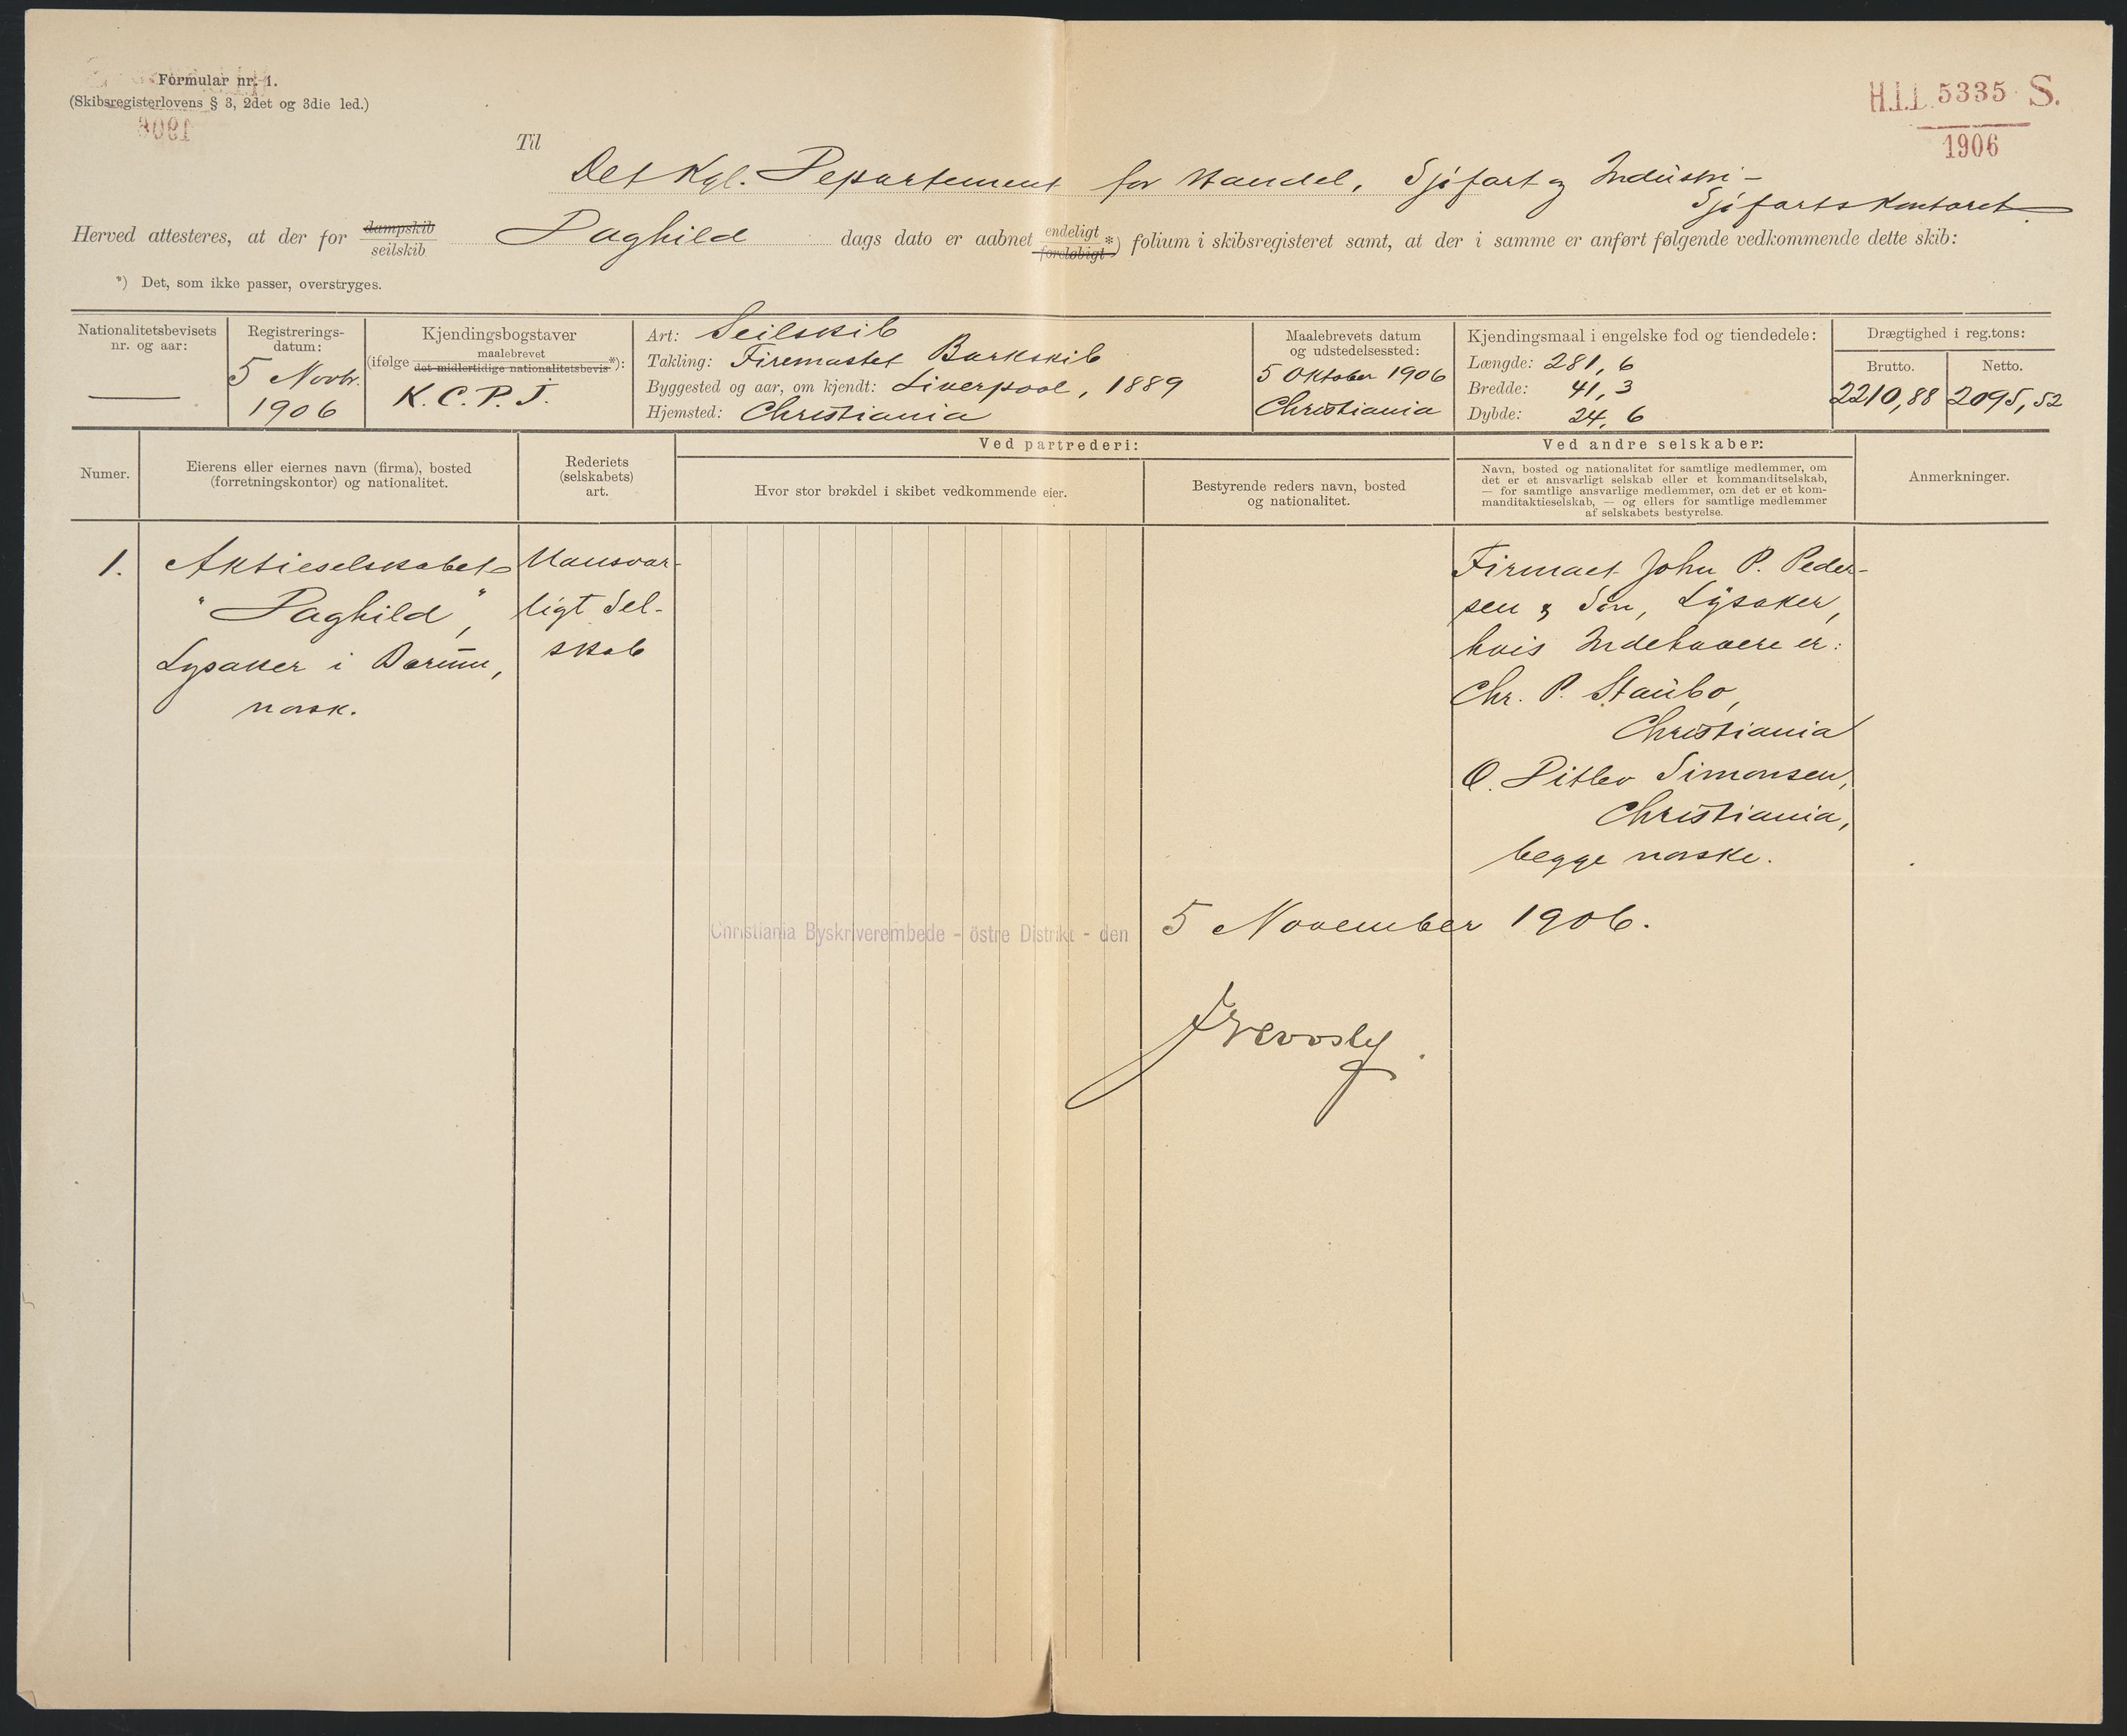 Formular nr. 1.
(Skibsregisterlovens § 3, 2det og 3die led.)
H.I.I. 5335 S.
1906
Til
Det Kgl. Departement for Handel, Sjøfart og Industri -
Sjøfartskontoret.
Herved attesteres, at der for dampskib seilskib Daghild dags dato er aabnet endeligt foreløbigt *) folium i skibsregisteret samt, at der i samme er anført følgende vedkommende dette skib:
*) Det, som ikke passer, overstryges.
Nationalitetsbevisets
nr. og aar:
Registrerings-
datum:
5 Novbr.
1906
Kjendingsbogstaver
(ifølge maalebrevet det midlertidige nationalitetsbevis *):
K. C. P. J.
Art: Seilskib
Takling: Firemastet Barkskib
Byggested og aar, om kjendt: Liverpool, 1889
Hjemsted: Christiania
Maalebrevets datum
og udstedelsessted:
5 Oktober 1906
Christiania
Kjendingsmaal i engelske fod og tiendedele:
Længde: 281,6
Bredde: 41,3
Dybde: 24,6
Drægtighed i reg.tons:
Brutto.
2210,88
Netto.
2095,52
Numer.
Eierens eller eiernes navn (firma), bosted
(forretningskontor) og nationalitet.
Rederiets
(selskabets)
art.
Ved partrederi:
Hvor stor brøkdel i skibet vedkommende eier.
Bestyrende reders navn, bosted
og nationalitet.
Ved andre selskaber:
Navn, bosted og nationalitet for samtlige medlemmer, om
det er et ansvarligt selskab eller et kommanditselskab,
— for samtlige ansvarlige medlemmer, om det er et kom-
manditaktieselskab, — og ellers for samtlige medlemmer
af selskabets bestyrelse.
Anmerkninger.
1.
Aktieselskabet
"Daghild",
Lysaker i Bærum,
norsk.
Uansvar-
ligt Sel-
skab
Firmaet John P. Peder-
sen & Søn, Lysaker,
hvis Indehavere er:
Chr. P. Staubo,
Christiania
O. Ditlev Simonsen,
Christiania,
begge norske.
Christiania Byskriverembede - östre Distrikt - den 5 November 1906.